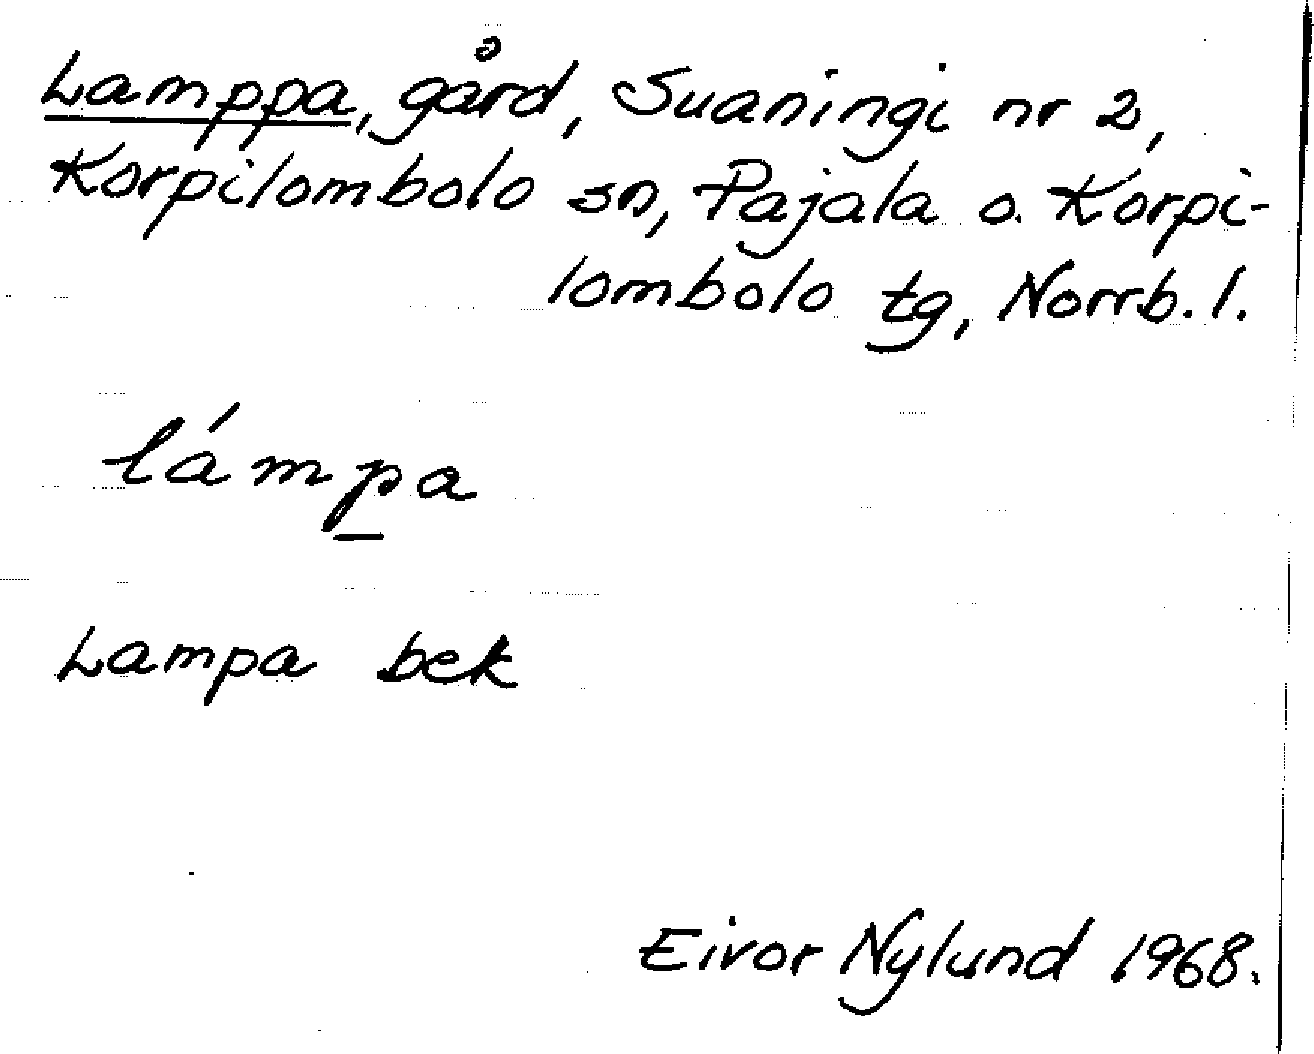 Lamppa, gård, Suaningi nr 2,
Korpilombolo sn, Pajala o. Korpi-
lombolo tg, Norrb. l.
lámp̲a
Lampa bek
Eivor Nylund 1968.